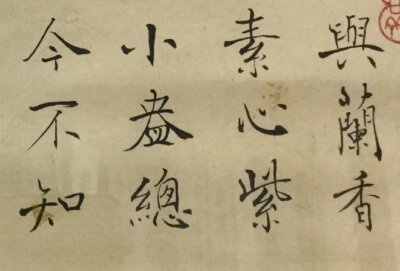 與蘭香
素心紫
小盎總
今不知